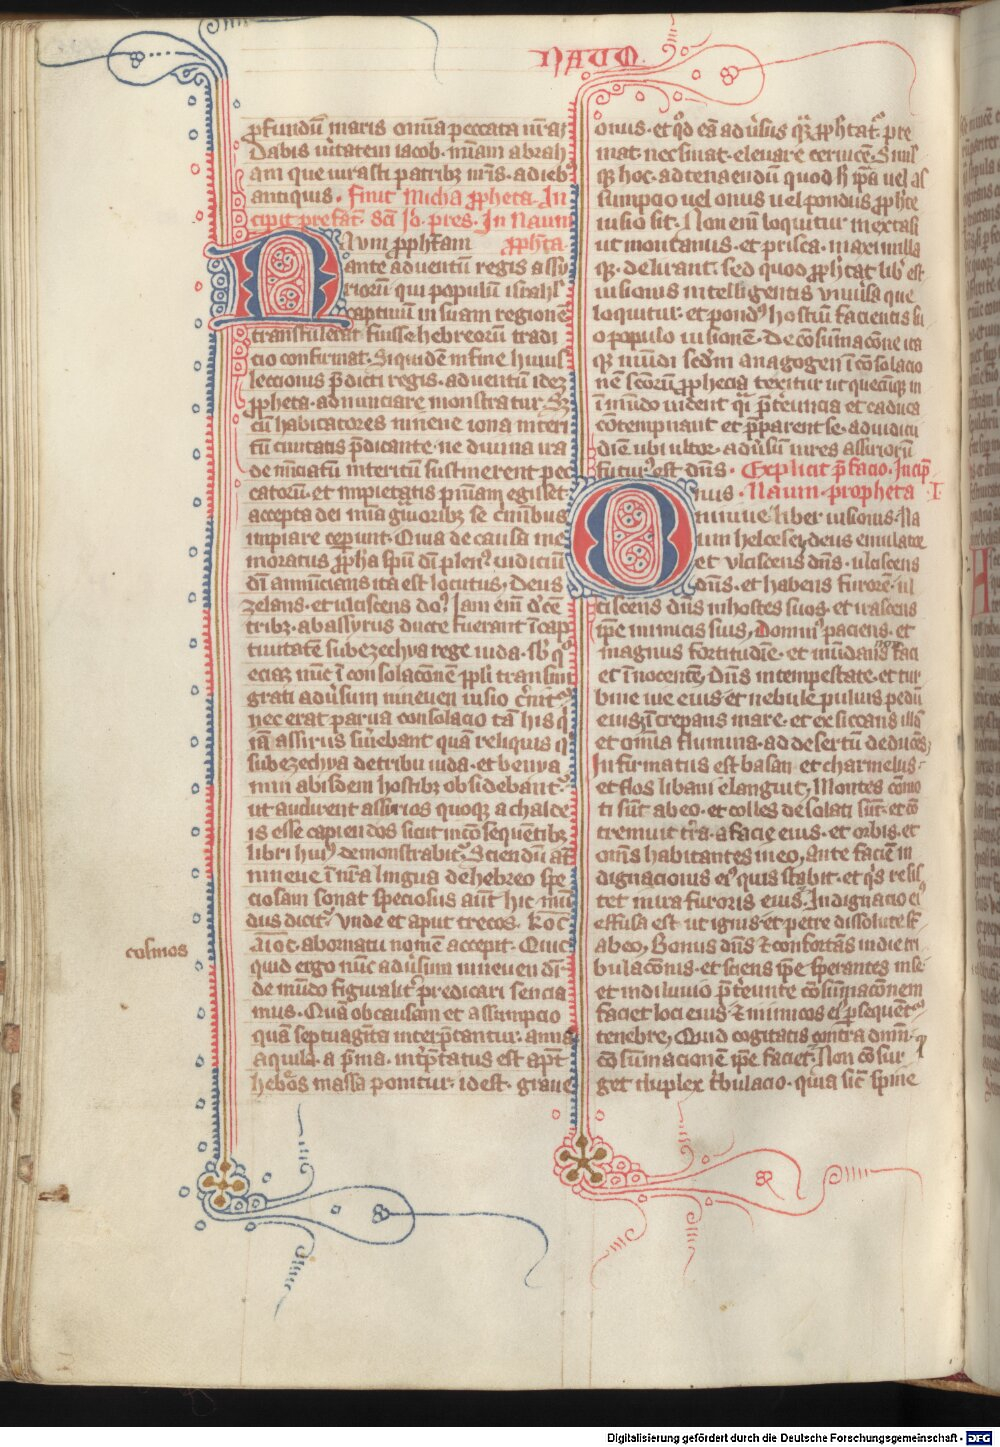 NAUM
ꝓfundū maris omīa peccata nr̄aꝝ
Dabis v̓itatem iacob · mīam abrah
am que iurasti patribꝫ nr̄is · a dieb
antiquis · Finit Micha ꝓpheta · In
cipit prefat̄ · sc̄i Jo · pres · In Naum
Naum ꝓph̄tam ꝓph̄ta ·
ante aduentū regis assi
riorū qui populū israhl̓
captiuū in suam regionē
transtulerat fuisse hebreorum tradi
cio confirmat · Siquidē in fine huius
leccionis p̄dicti regis · aduentū idez
ꝓpheta · adnunciare monstratur · Sꝫ
cū habitatores niniue iona interi
tū ciuitatis p̄dicante · ne diuina ira
denūciatū interitū sustinerent pec
catorū · et impietatis pn̄iam egisset ·
accepta dei mīa g̓uioribꝫ se c̓minibus
impiare ceperunt · Qua de causa me
moratus ꝓpha spū dī plen⁹ · iudiciū
dī annūcians ita est locutus, Deus
zelans · et ulciscens do⁹ · Iam em̄ d̓ce
tribꝫ · ab assyrus ducte fuerant ī cap
tiuitatē sub ezechya rege iuda · sb̓ q°
eciaꝫ nūc ī consolacōnē ppli transmi
grati adu̓sum nineuen iusio c̓nit ·
nec erat parua consolacio tā his q̓
iā assirus sūiebant quā reliquis q̓
sub ezechya de tribu iuda · et beniya
min ab isdem hostibꝫ obsidebant̓ ·
ut audirent assirios quoqꝫ a chalde
is esse capiendos sicut in cōsequētibꝫ
libri hui⁹ demonstrabit̓ · Sciendū aūt
niniue ī nr̄a lingua de hebreo spe
ciosam sonat speciosus aūt hic mū
dus dicit̓ · vnde et aput grecos · koc
aioc · ab ornatu nomē accepit · Quic
quid ergo nūc adu̓sum nineuen dr̄ ·
de mūdo figuralit̓ predicari sencia
mus · Quā ob causam et assumpcio
quā septuagīta interp̄tantur · anna
aquila · a p̄ma · int̓p̄tatus est apt̓
hebr̄os massa ponitur · id est · graue
cosmos
onus · et qd̓ eā adu̓sus quā ꝓph̄tat · pre
mat · nec sinat · eleuare ceruicē · Simil̓
qꝫ hoc · ad tenaendū quod si ip̄a uel as
sumpcio uel onus uel pondus ꝓph̄te
iusio sit · Non em̄ loquitur in extasi
ut montanus · et prisca · maximilla
qꝫ · delirant · sed quod ꝓph̄tat · lib̓ est
iusionis intelligentis vniu̓sa que
loquitur · et pond⁹ hostiū facientis su
o populo iusionē · De cōsumacōne ita
qꝫ mūdi scd̓m anagogen ī cōsolacio
nē scōrū ꝓphecia texitur ut quecūqꝫ in
ī mūdo uident̓ q̓i p̄t̓euncia et caduca
cōtempnant et p̄parent se · ad iudicii
diē ubi ultor · adu̓sū ueres assiriorū
futur⁹ est dn̄s · Explicit p̄facio · Incip̄
Onus · Naum · propheta · I
niniue · liber iusionis · Na
um helcesei, deus emulator
et vlciscens dn̄s · ulciscens
dn̄s · et habens furorē · ul
ciscens dn̄s in hostes suos · et irascens
ip̄e inimicis suis, Domin⁹ paciens · et
magnus fortitudīe · et mūdans non faci
et īnocentē, Dn̄s in tempestate · et tur
bine uie eius · et nebule puluis pedū
eius, īcrepans mare · et exsiccans illd̓
et omīa flumina · ad desertū deducēs,
Infirmatus est basan · et charmelus ·
et flos libani elanguit, Montes cōmo
ti sūt ab eo · et colles desolati sūt · et cō
tremuit t̓ra · a facie eius · et orbis · et
omēs habitantes in eo, Ante faciē in
dignacionis ei⁹ quis stabit · et q̓s resis
tet in ira furoris eius, Indignacio ei⁹
effusa est ut ignis · et petre dissolute st̄
ab eo, Bonus dn̄s ⁊ confortās in die tri
bulacōnis · et sciens ip̄e sperantes in se ·
et in diluuio p̄t̓eunte cōsūmacōnem
faciet loci eius · ⁊ inimicos ei⁹ ꝑsequēt̓
tenebre, Quid cogitatis contra dn̄m · q̓
cōsūmacionē ip̄e faciet, Non cōsur
get duplex t̓bulacio · quia sic̄ spine
Digitalisierung gefördert durch die Deutsche Forschungsgemeinschaft - DFG